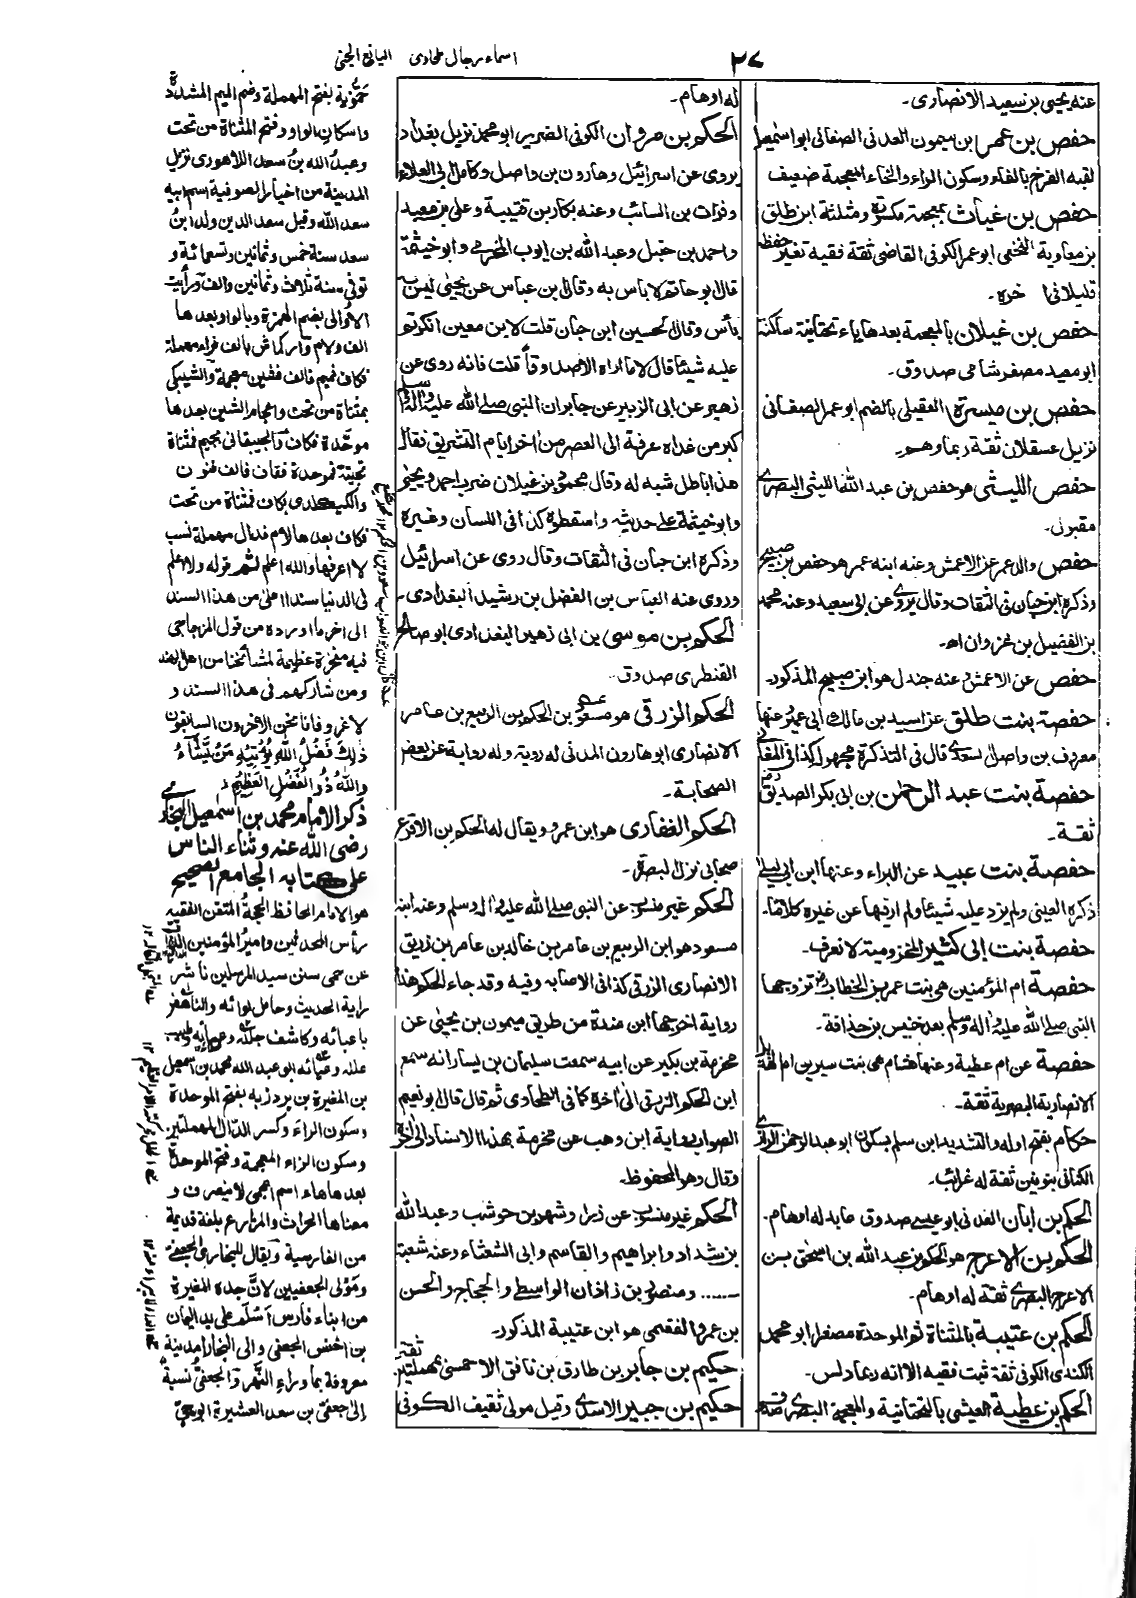 ٢٧
اسماء رجال طحاوی
اليانع الجنی
عنه يحيى بن سعيد الانصاری۔
حفص بن عمر بن ميمون العدنی الصنعانی ابو اسمعيل
لقبه الفرخ بالفاء وسكون الراء والخاء المعجمة ضعيف
حفص بن غياث بمعجمة مكسورة ومثلثة ابن طلق
بن معاوية النخعی ابو عمر الكوفی القاضی ثقة فقيه تغير حفظه
قليلا فی اخره۔
حفص بن غيلان بالمعجمة بعدها ياء تحتانية ساكنة
ابو معيد مصغر شامی صدوق۔
حفص بن ميسرة العقيلی بالضم ابو عمر الصنعانی
نزيل عسقلان ثقة ربما وهم۔
حفص الليثی هو حفص بن عبد الله الليثی البصری
مقبول۔
حفص والد عمر عن الاعمش وعنه ابنه عمر هو حفص بن صبيح
وذكره ابن حبان فی الثقات وقال يروی عن ابی سعيد وعنه محمد
بن الفضيل بن غزوان اه۔
حفص عن الاعمش وعنه جندل هو ابن صبيح المذكور۔
حفصة بنت طلق عن اسيد بن مالك ابی عمير وعنها
معروف بن واصل السعدی قال فی التذكرة مجهول كذا فی
حفصة بنت عبد الرحمن بن ابی بكر الصديق
ثقة۔
حفصة بنت عبيد عن البراء وعنها ابن ابی ليلی
ذكره العينی ولم يزد عليه شيئا ولم ارفها عن غيره كلاما۔
حفصة بنت ابی كثير المخزومية لا تعرف۔
حفصة ام المؤمنين هی بنت عمر بن الخطاب تزوجها
النبی صلی الله عليه واله وسلم بعد خنيس بن حذافة۔
حفصة عن ام عطية وعنها هشام هی بنت سيرين ام الهذيل
الانصارية البصرية ثقة۔
حكام بفتح اوله والتشديد ابن سلم بسكون ابو عبد الرحمن الرازی
الكنانی بنونين ثقة له غرائب۔
الحكم بن ابان العدنی ابو عيسی صدوق عابد له اوهام۔
الحكم بن الاعرج هو الحكم بن عبد الله بن اسحق بن
الاعرج البصری ثقة له اوهام۔
الحكم بن عتيبة بالمثناة ثم الموحدة مصغرا ابو محمد
الكندی الكوفی ثقة ثبت فقيه الا انه ربما دلس۔
الحكم بن عطية العيشی بالتحتانية والمعجمة البصری صدوق
له اوهام۔
الحكم بن مروان الكوفی الضرير ابو محمد نزيل بغداد
يروی عن اسرائيل وهارون بن واصل وكامل ابی العلاء
وفرات بن السائب وعنه بكار بن قتيبة وعلی بن معيد
واحمد بن حنبل وعبد الله بن ايوب المخرمی وابو خيثمة
قال ابو حاتم لا باس به وقال بن عباس عن يحيی ليس به
بأس وقال لحسين ابن حبان قلت لابن معين انكرتم
عليه شيئا قال لا ما اراه الا صدوقا قلت فانه روی عن
زهير عن ابی الزبير عن جابر ان النبی صلی الله عليه واله وسلم
كبر من غداه عرفة الی العصر من اخر ايام التشريق فقال
هذا باطل شبه له وقال محمود بن غيلان ضرب احمد ويحيی
وابو خيثمة علی حديثه واسقطوه كذا فی اللسان وغيره
وذكره ابن حبان فی الثقات وقال روی عن اسرائيل
وروی عنه العباس بن الفضل بن رشيد البغدادی۔
الحكم بن موسی بن ابی زهير البغدادی ابو صالح
القنطری صدوق۔
الحكم الزرقی هو مسعود بن الحكم بن الربيع بن عامر
الانصاری ابو هارون المدنی له روية وله رواية عن بعض
الصحابة۔
الحكم الغفاری هو ابن عمرو ويقال له الحكم بن الاقرع
صحابی نزل البصرة۔
الحكم غير منسوب عن النبی صلی الله عليه واله وسلم وعنه ابنه
مسعود هو ابن الربيع بن عامر بن خالد بن عامر بن زريق
الانصاری الزرقی كذا فی الاصابه وفيه وقد جاء الحكم هذا
رواية اخرجها ابن مندة من طريق ميمون بن يحيی عن
مخرمة بن بكير عن ابيه سمعت سليمان بن يسار انه سمع
ابن الحكم الزرقی الی اخره كما فی الطحاوی ثم قال قال ابو نعيم
الصواب رواية ابن وهب عن مخرمة بهذا الاسناد الی اخره
وقال وهو المحفوظ۔
الحكم غير منسوب عن ذر وشهر بن حوشب وعبد الله
بن شداد وابراهيم والقاسم وابی الشعثاء وعنه شعبة
...... ومنصور بن زاذان الواسطی والحجاج والحسن
بن عمرو الفقيمی هو ابن عتيبة المذكور۔
حكيم بن جابر بن طارق بن نافق الاحمسی بمهملتين ثقة
حكيم بن جبير الاسدی وقيل مولی ثقيف الكوفی
حمّوية بفتح المهملة وضم الميم المشددة
واسكان الواو وفتح المثناة من تحت
وعبد الله بن سعد اللاهوری نزيل
المدينة من اخيار الصوفية اسم ابيه
سعد الله وقيل سعد الدين ولد ابن
سعد سنة خمس وثمانين وتسعمائة و
توفی سنة ثلاث وثمانين والف ورأيت
الاوالی بضم الهمزة وبالواو بعدها
الف ولام واركماش بالف فراء مهملة
فكاف فميم فالف فشين معجمة والشيبكی
بمثناة من تحت واعجام الشين بعدها
موحّدة فكاف والجيبقانی بجيم فمثناة
تحتية فموحدة فقاف فالف فنون
والكيكلدی بكاف فمثناة من تحت
فكاف بعدها لام فدال مهملة نسب
لا اعرفها والله اعلم ثم قوله ولا اعلم
فی الدنيا سندا اعلی من هذا السند
الی اخر ما اورده من قول المزجاجی
فيه مفخرة عظيمة لمشائخنا من اهل الهند
ومن شاركهم فی هذا السند و
لا غرو فانا نحن الاخرون السابقون
ذٰلك فضل الله يؤتيه من يشاء
والله ذو الفضل العظيم
ذكر الامام محمد بن اسمعيل البخاری
رضی الله عنه وثناء الناس
علی كتابه الجامع الصحيح
هو الامام الحافظ الحجة المتقن الفقيه
رأس المحدثين وامير المؤمنين
عن حمی سنن سيد المرسلين ناشر
راية الحديث وحامل لوائه والناهض
باعبائه وكاشف
علله ابو عبد الله محمد بن اسمعيل
بن المغيرة بن بردزبه بفتح الموحدة
وسكون الراء وكسر الدال المهملتين
وسكون الزاء المعجمة وفتح الموحدة
بعدها هاء اسم اعجمی لا ينصرف و
معناها الحراث والمزارع بلغة قديمة
من الفارسية ويقال للبخاری الجعفی
ومولی الجعفيين لان جده المغيرة
من ابناء فارس اسلم علی يد اليمان
بن اخنس الجعفی والی البخارا مدينة
معروفة بما وراء النهر والجعفی نسبة
الی جعفی بن سعد العشيرة ابو حی